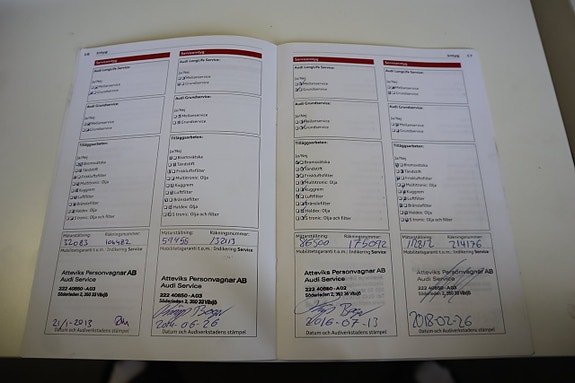 Intyg
Serviceintyg
Audi LongLife Service:
Ja Nej
Mellanservice
Grundservice
Audi Grundservice:
Ja/Nej
Mellanservice
Grundservice
Tilläggsarbeten:
Ja/Nej
Bromsvätska
Tändstift
Friskluftsfilter
Multitronic: Olja
Kuggrem
Luftfilter
Bränslefilter
Haldex: Olja
S tronic: Olja och filter
Mätarställning: Räkningsnummer:
32083 104482
Mobilitetsgaranti t.o.m.: Indikering Service
Atteviks Personvagnar AB
Audi Service
222 40850 -A03
Söderleden 2, 350 33 Växjö
21/1-2013
Datum och Audiverkstadens stämpel
Serviceintyg
Audi LongLife Service:
Ja Nej
Mellanservice
Grundservice
Audi Grundservice:
Ja/Nej
Mellanservice
Grundservice
Tilläggsarbeten:
Ja/Nej
Bromsvätska
Tändstift
Friskluftsfilter
Multitronic: Olja
Kuggrem
Luftfilter
Bränslefilter
Haldex: Olja
S tronic: Olja och filter
Mätarställning: Räkningsnummer:
59456 132113
Mobilitetsgaranti t.o.m.: Indikering Service
Atteviks Personvagnar AB
Audi Service
222 40850 -A03
Söderleden 2, 350 33 Växjö
2014-06-26
Datum och Audiverkstadens stämpel
Intyg 17
Serviceintyg
Audi LongLife Service:
Ja Nej
Mellanservice
Grundservice
Audi Grundservice:
Ja/Nej
Mellanservice
Grundservice
Tilläggsarbeten:
Ja/Nej
Bromsvätska
Tändstift
Friskluftsfilter
Multitronic: Olja
Kuggrem
Luftfilter
Bränslefilter
Haldex: Olja
S tronic: Olja och filter
Mätarställning: Räkningsnummer:
86500 175092
Mobilitetsgaranti t.o.m.: Indikering Service
Atteviks Personvagnar AB
Audi Service
222 40850 -A02
Söderleden 2, 352 36 Växjö
2016-07-13
Datum och Audiverkstadens stämpel
Serviceintyg
Audi LongLife Service:
Ja Nej
Mellanservice
Grundservice
Audi Grundservice:
Ja/Nej
Mellanservice
Grundservice
Tilläggsarbeten:
Ja/Nej
Bromsvätska
Tändstift
Friskluftsfilter
Multitronic: Olja
Kuggrem
Luftfilter
Bränslefilter
Haldex: Olja
S tronic: Olja och filter
Mätarställning: Räkningsnummer:
112812 214176
Mobilitetsgaranti t.o.m.: Indikering Service
Atteviks Personvagnar AB
Audi Service
222 40850 -A03
Söderleden 2, 350 33 Växjö
2018-02-26
Datum och Audiverkstadens stämpel